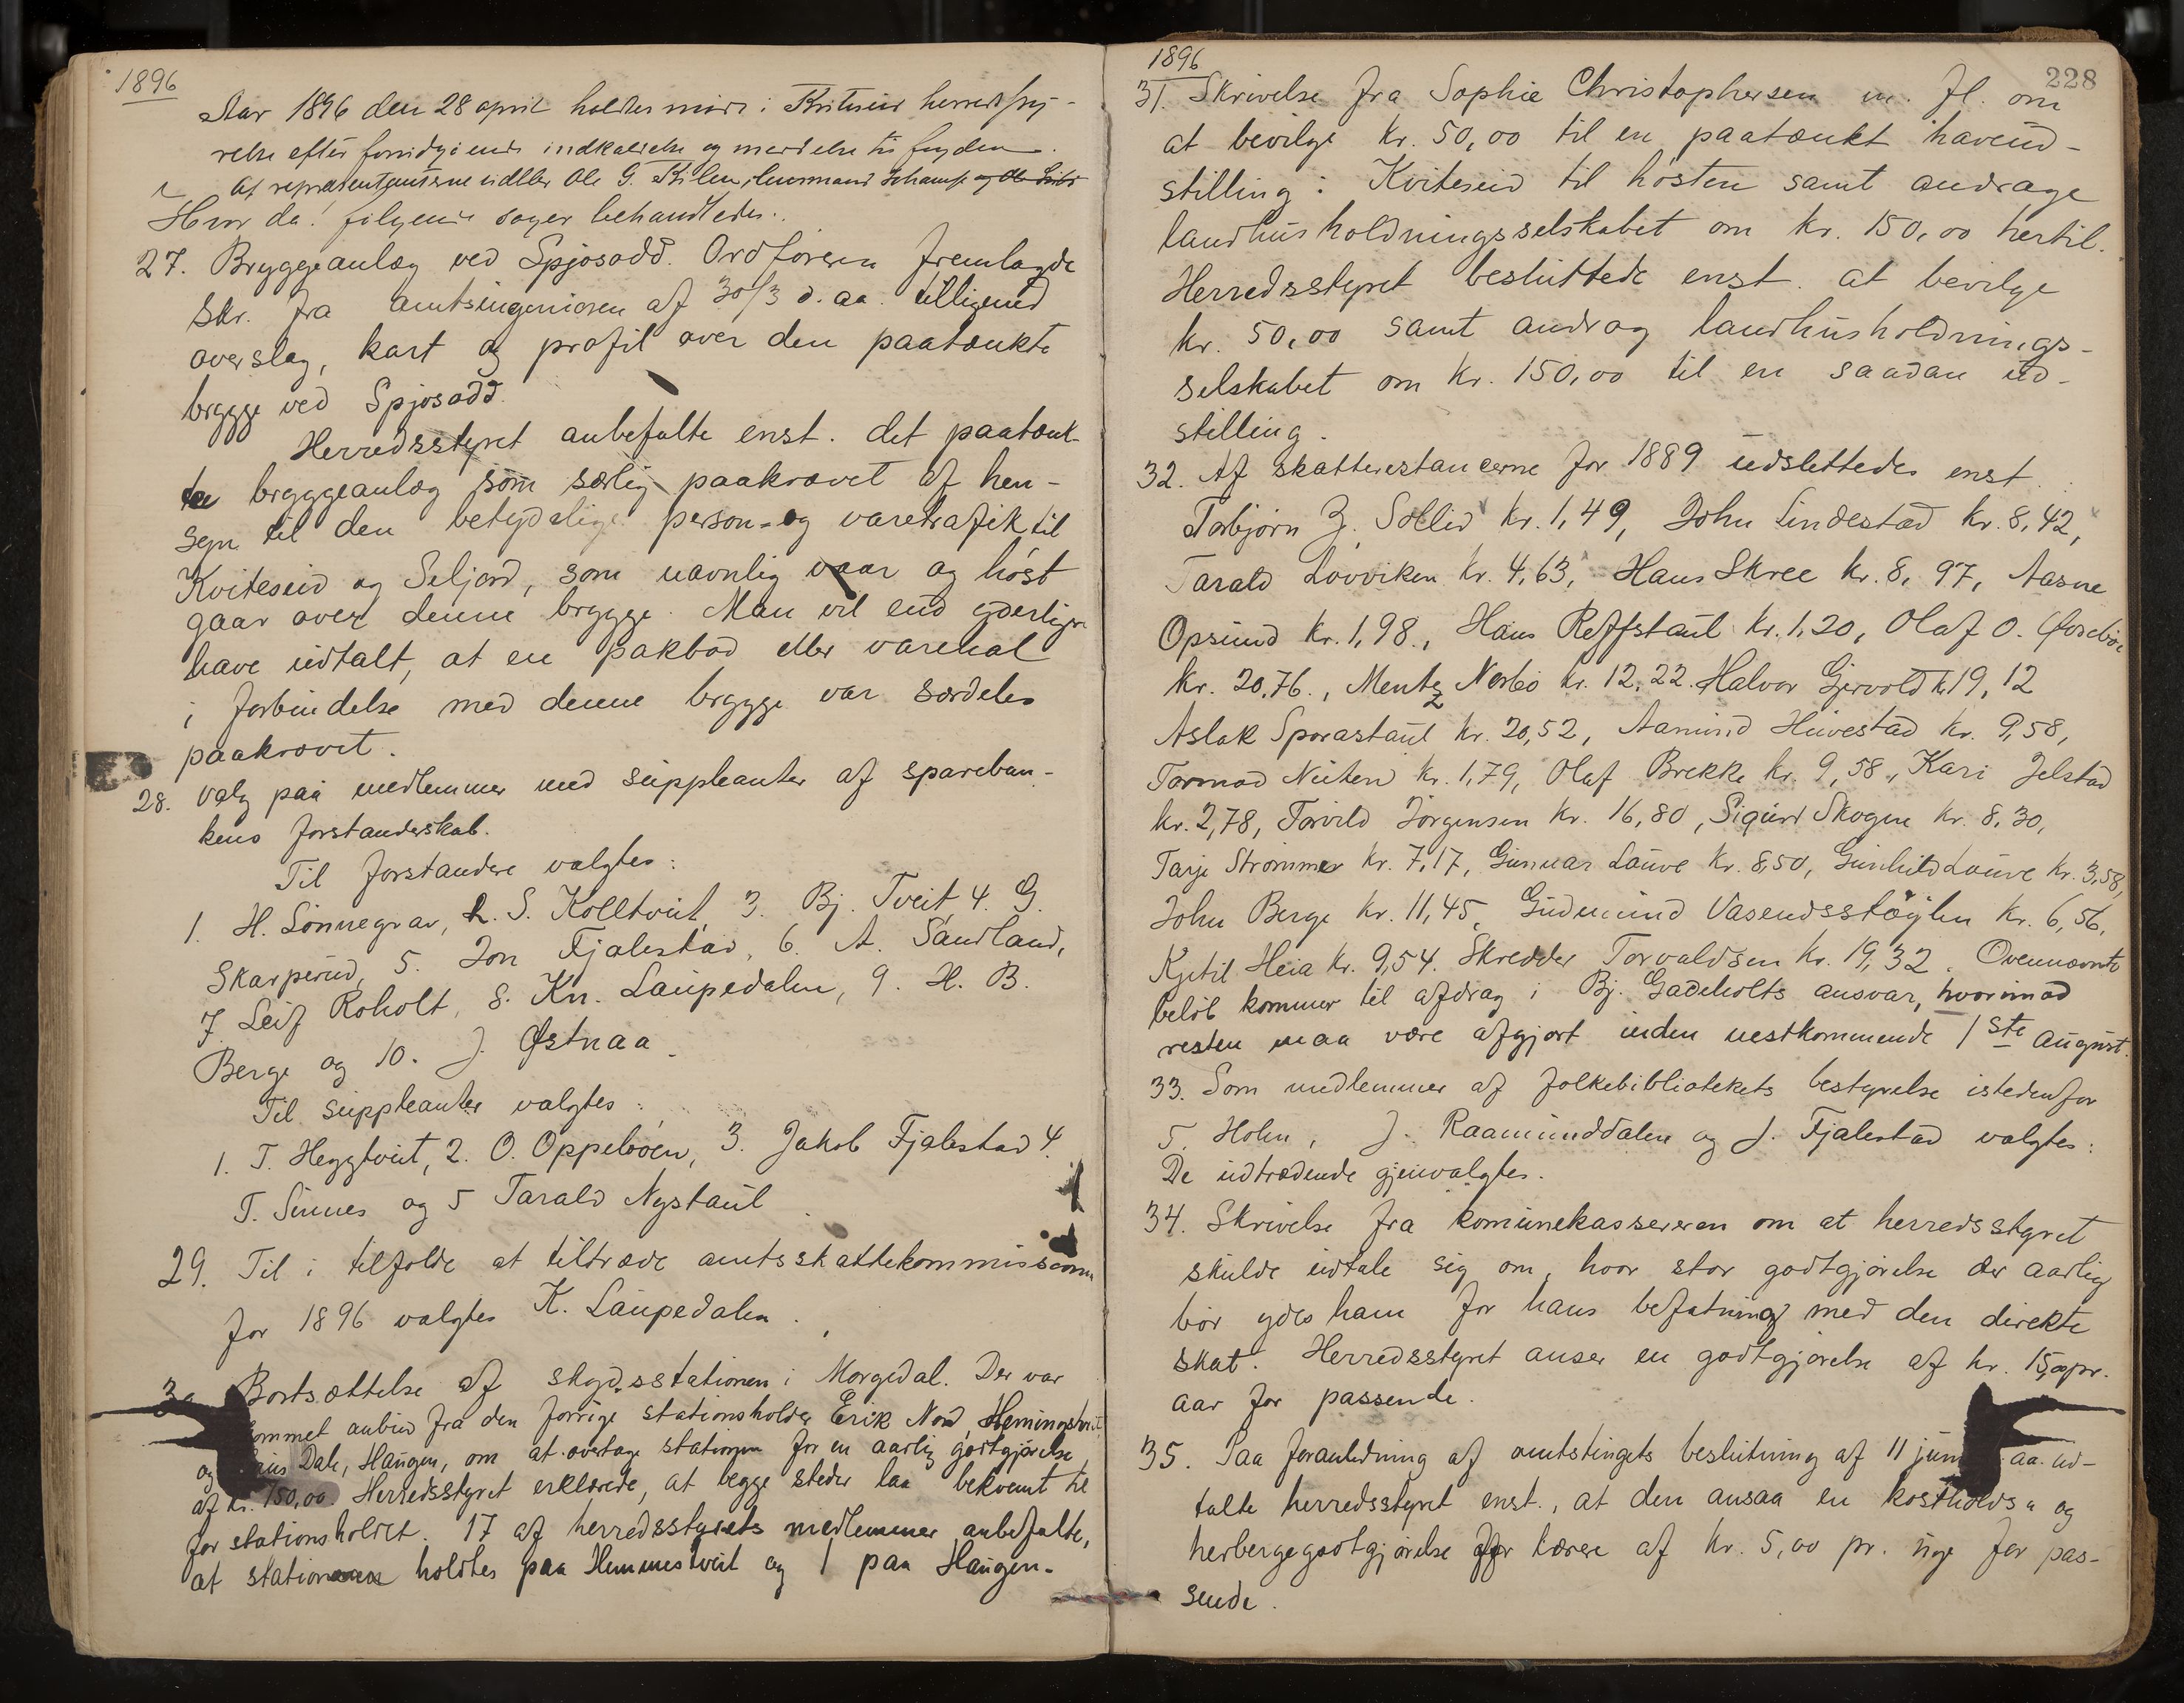 1896
Aar 1896 den 28 april holdtes möde i Kviteseid herredssty-
relse efter forudgiende indkaldelse og meddelse til fogden.
Af repræsentanterne udebler Ole G. Kilen, lensmand Schamp og Ole
Hvor da! følgende sager behandledes.
27. Bryggeanlæg ved Spjosodd. Ordføreren fremlagde
Skr. fra amtsingeniøren af 30/3 d. aa. tilligemed
overslag, kart og profil over den paatænkte
brygge ved Spjosodd.
Herredsstyret anbefalte enst. det paatænk-
te bryggeanlæg som særlig paakrævet af hen-
syn til den betydelige person- og varetrafik til
Kviteseid og Seljord, som navnlig vaar og höst
gaar over denne brygge. Man vil end yderligre
have udtalt, at en pakbod eller varehal
i forbindelse med denne brygge var særdeles
paakrævet.
28. Valg paa medlemmer med suppleanter af spareban-
kens forstanderskab.
Til forstandere valgtes:
1. H. Lönnegrav, 2. S. Kolltveit, 3. Bj. Tveit, 4. G.
Skarperud, 5. Jon Fjalestad, 6. A. Sandland,
7. Leif Roholt, 8. Kn. Laupedalen, 9. H. B.
Berge og 10. J. Østnaa.
Til suppleanter valgtes:
1. T. Heggtveit, 2. O. Oppeböen, 3. Jakob Fjalestad 4.
T. Sinnes og 5 Tarald Nystaul.
29. Til i tilfælde at tiltræde amtsskattekommissionen
for 1896 valgtes K. Laupedalen.
30 Bortsættelse af skydsstationen i Morgedal. Der var
kommet anbud fra den forrige stationsholder Erik Nord Hemingstveit
og Dale, Haugen, om at overtage stationen for en aarlig godtgjørelse
af kr. 150,00. Herredsstyret erklærede, at begge steder laa bekvemt til
for stationsholdet. 17 af herredsstyrets medlemmer anbefalte,
at stationen holdtes paa Hemmestveit og 1 paa Haugen.
1896
228
31. Skrivelse fra Sophie Christophersen m. fl. om
at bevilge kr. 50,00 til en paatænkt haveud-
stilling i Kviteseid til hösten samt andrage
landhusholdningsselskabet om kr. 150,00 hertil.
Herredsstyret besluttede enst. at bevilge
kr. 50,00 samt andrag landhusholdnings-
selskabet om kr. 150,00 til en saadan ud-
stilling.
32. Af skatterestancerne for 1889 udslettedes enst.
Torbjörn Z. Sollid kr. 1,49, John Lindestad kr. 8,42,
Tarald Lovviken kr. 4,63, Hans Skree kr. 8,97, Aasne
Opsund kr. 1,98., Hans Reffstaul kr. 1,20, Olaf O.
kr. 20,76., Mentz Nerbö kr. 12,22. Halvor Gjervold k. 19,12
Aslak Sporastaul kr. 20,52, Aamund Huvestad kr. 9,58,
Tormod Nuten kr. 1,79, Olaf Brekke kr. 9,58., Kari Jelstad
kr. 2,78, Torvild Jörgensen kr. 16,80, Sigurd Skogen kr. 8,30,
Tarje Strömmer kr. 7,17, Gunnar Lauve kr. 8,50, Gunhild Lauve kr. 3,58,
John Berge kr. 11,45, Gudmund Vasendsstöylen kr. 6,56,
Kjetil Heia kr. 9,54. Skredder Torvaldsen kr. 19,32. Ovennævnte
belöb kommer til afdrag i Bj. Gadeholts ansvar, hvorimod
resten maa være afgjort inden nestkommende 1ste august.
33. Som medlemmer af folkebibliotekets bestyrelse istedenfor
T. Holm, J. Raamunddalen og J. Fjalestad valgtes:
De udtrædende gjenvalgtes.
34. Skrivelse fra komunekassereren om at herredsstyret
skulde udtale sig om, hvor stor godtgjörelse der aarlig
bör ydes ham for hans befatning med den direkte
skat. Herredsstyret anser en godtgjörelse af kr. pr.
aar for passende.
35. Paa foranledning af amtstingets beslutning af 11 juni aa. ud-
talte herredsstyret enst., at den ansaa en kostholds- og
herbergegodtgjörelse for lærere af kr. 5,00 pr. uge for pas-
sende.